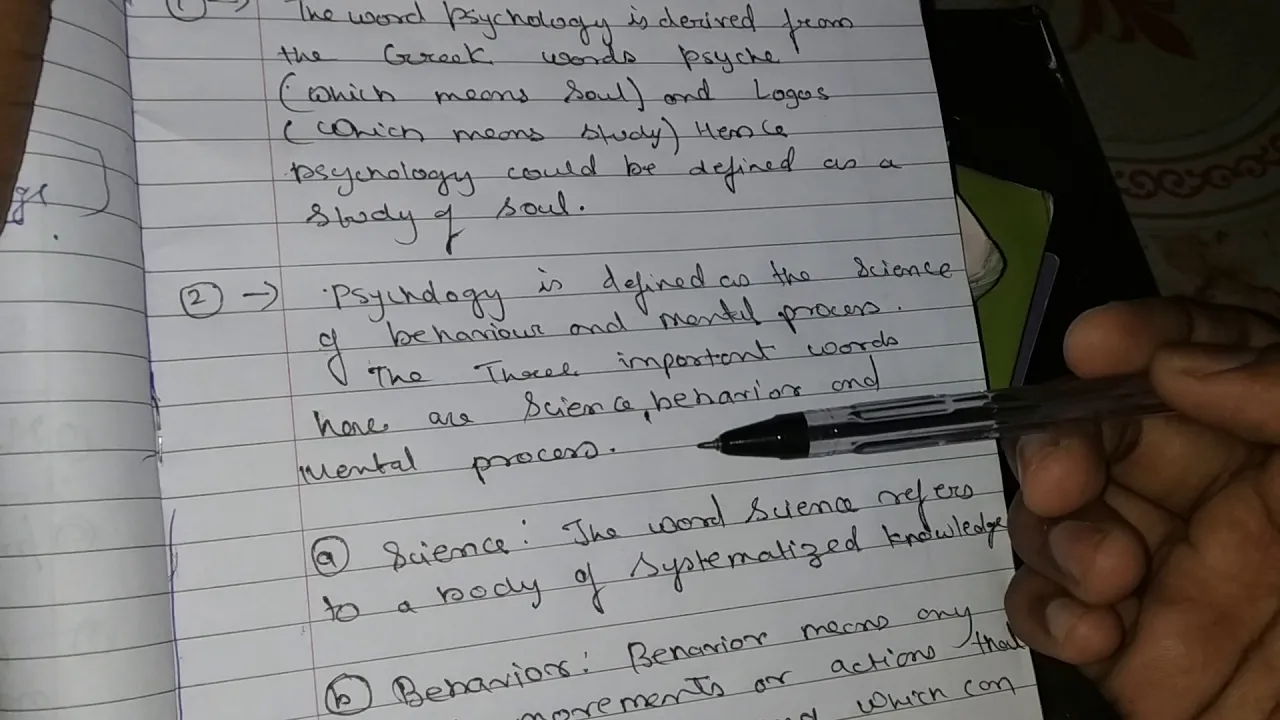 ① → The word psychology is derived from
the Greek words psyche
(which means Soul) and Logos
(which means study) Hence
psychology could be defined as a
Study of soul.
② → Psychology is defined as the Science
of behaviour and mental process.
The Three important words
here are Science, behavior and
mental process.
ⓐ Science: The word science refers
to a body of systematized knowledge
ⓑ Behavior: Behavior means any
movements or actions that
which can